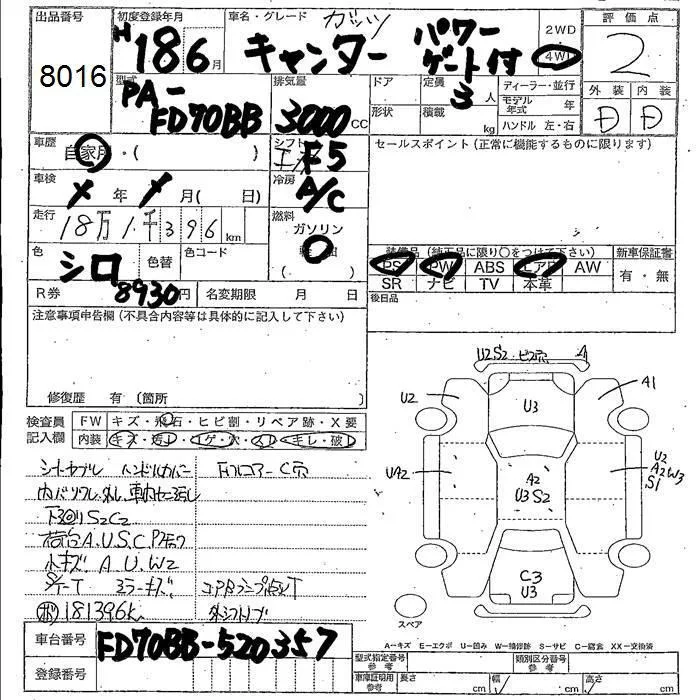 出品番号
8016
初度登録年月
H 18 6 月
車名・グレード ガッツ
キャンター パワーゲート付
2WD
4WD
評価点
2
外装 内装
D D
型式
PA-FD70BB
排気量
3000 CC
ドア
形状
定員
3 人
積載
kg
ディーラー・並行
モデル年式 年
ハンドル 左・右
車歴
自家用・( )
シフト
F5
セールスポイント(正常に機能するものに限ります)
車検
年 月( 日)
冷房
A/C
走行
18万1千396 km
燃料
ガソリン
( )
色
シロ
色替
色コード
装備品(純正品に限り○をつけて下さい)
新車保証書
PS PW ABS エアB AW
有・無
SR ナビ TV 本革
R券 8930円
名変期限 月 日
後日品
注意事項申告欄(不具合内容等は具体的に記入して下さい)
修復歴 有〔箇所 〕
検査員記入欄
FW キズ・飛石・ヒビ割・リペア跡・X要
内装 キズ・汚レ・コゲ・穴・スレ・キレ・破レ
シートヤブレ ハンドルカバー
Fフロアー C穴
下回りS2C2
荷台A.U.S.C.
小キズ A U.W2
ミラーキズ
181396k
U2S2 ビス穴 A
U2
A1
U3
UA2
A2
U3S2
U2
A2W3
S1
C3
U3
スペア
A−キズ E−エクボ U−凹み W−補修跡 S−サビ C−腐食 XX−交換済
車台番号
FD70BB-520357
登録番号
型式指定番号 参考
類別区分番号 参考
車庫証明用 参考
長さ cm
幅 cm
高さ cm